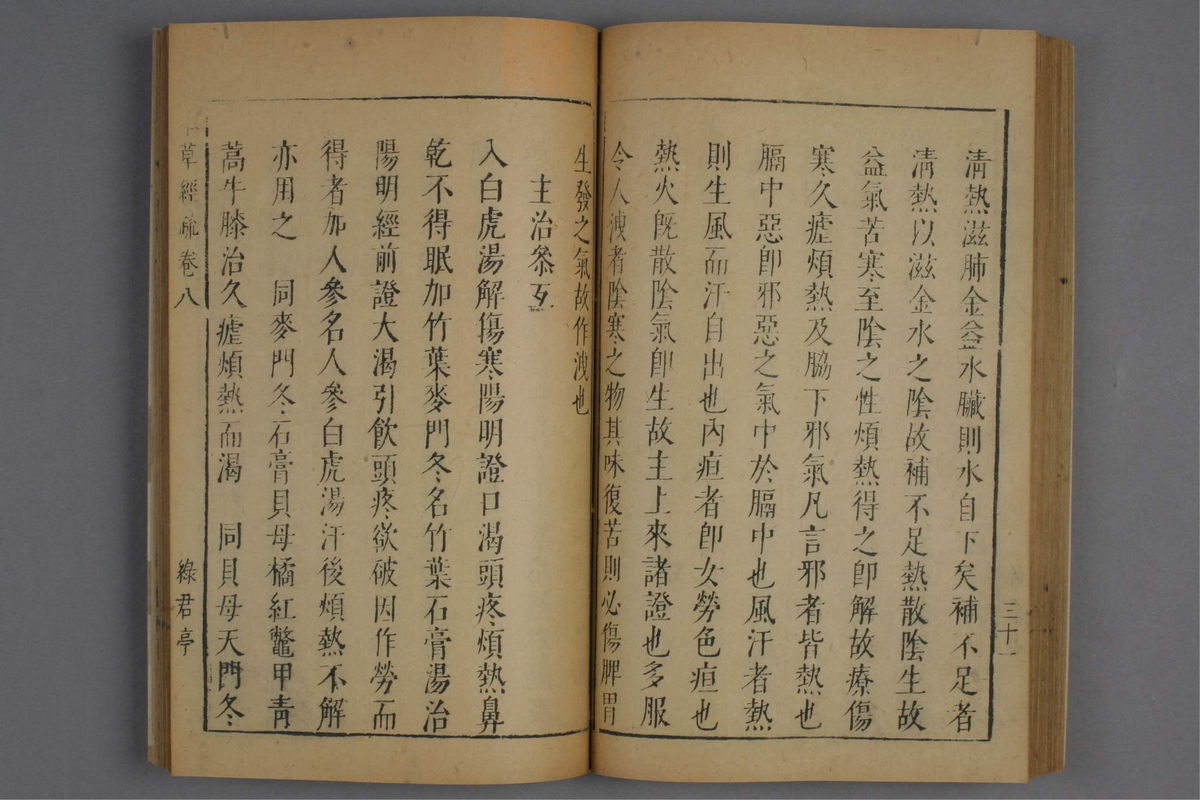 清熱滋肺金益水臟則水自下矣補不足者
清熱以滋金水之陰故補不足熱散陰生故
益氣苦寒至陰之性煩熱得之卽解故療傷
寒久瘧煩熱及脇下邪氣凡言邪者皆熱也
膈中惡卽邪惡之氣中於膈中也風汗者熱
則生風而汗自出也內疸者卽女勞色疸也
熱火旣散陰氣卽生故主上來諸證也多服
令人洩者陰寒之物其味復苦則必傷脾胃
生發之氣故作洩也
主治叅互
入白虎湯解傷寒陽明證口渴頭疼煩熱鼻
乾不得眠加竹葉麥門冬名竹葉石膏湯治
陽明經前證大渴引飲頭疼欲破因作勞而
得者加人參名人參白虎湯汗後煩熱不解
亦用之 同麥門冬石膏貝母橘紅鼈甲靑
蒿牛膝治久瘧煩熱而渴 同貝母天門冬
草經疏卷八
綠君亭
三十一